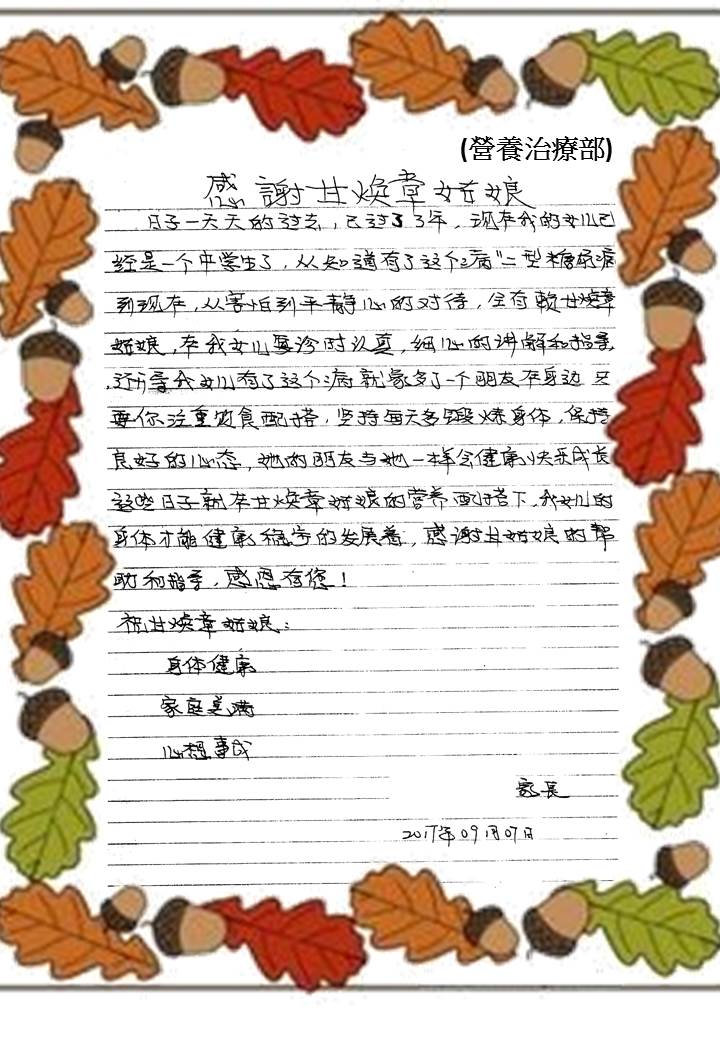 (營養治療部)
感謝甘煥章姑娘
日子一天天的过去,已过了3年,现在我的女儿已
经是一个中学生了,从知道有了这个病"二型糖尿病
到现在,从害怕到平静心的对待,全有赖甘焕章
姑娘,在我女儿复诊时认真,细心的讲解和指导
,还开导我女儿有了这个病就象多了一个朋友在身边 只
要你注重饮食配搭,坚持每天多锻炼身体,保持
良好的心态,她的朋友与她一样会健康快乐成长
这些日子就在甘焕章姑娘的营养配搭下,我女儿的
身体才能健康稳步的发展着,感谢甘姑娘的帮
助和指导,感恩有您!
祝甘焕章姑娘:
身体健康
家庭美满
心想事成
家長
2017年09月07日